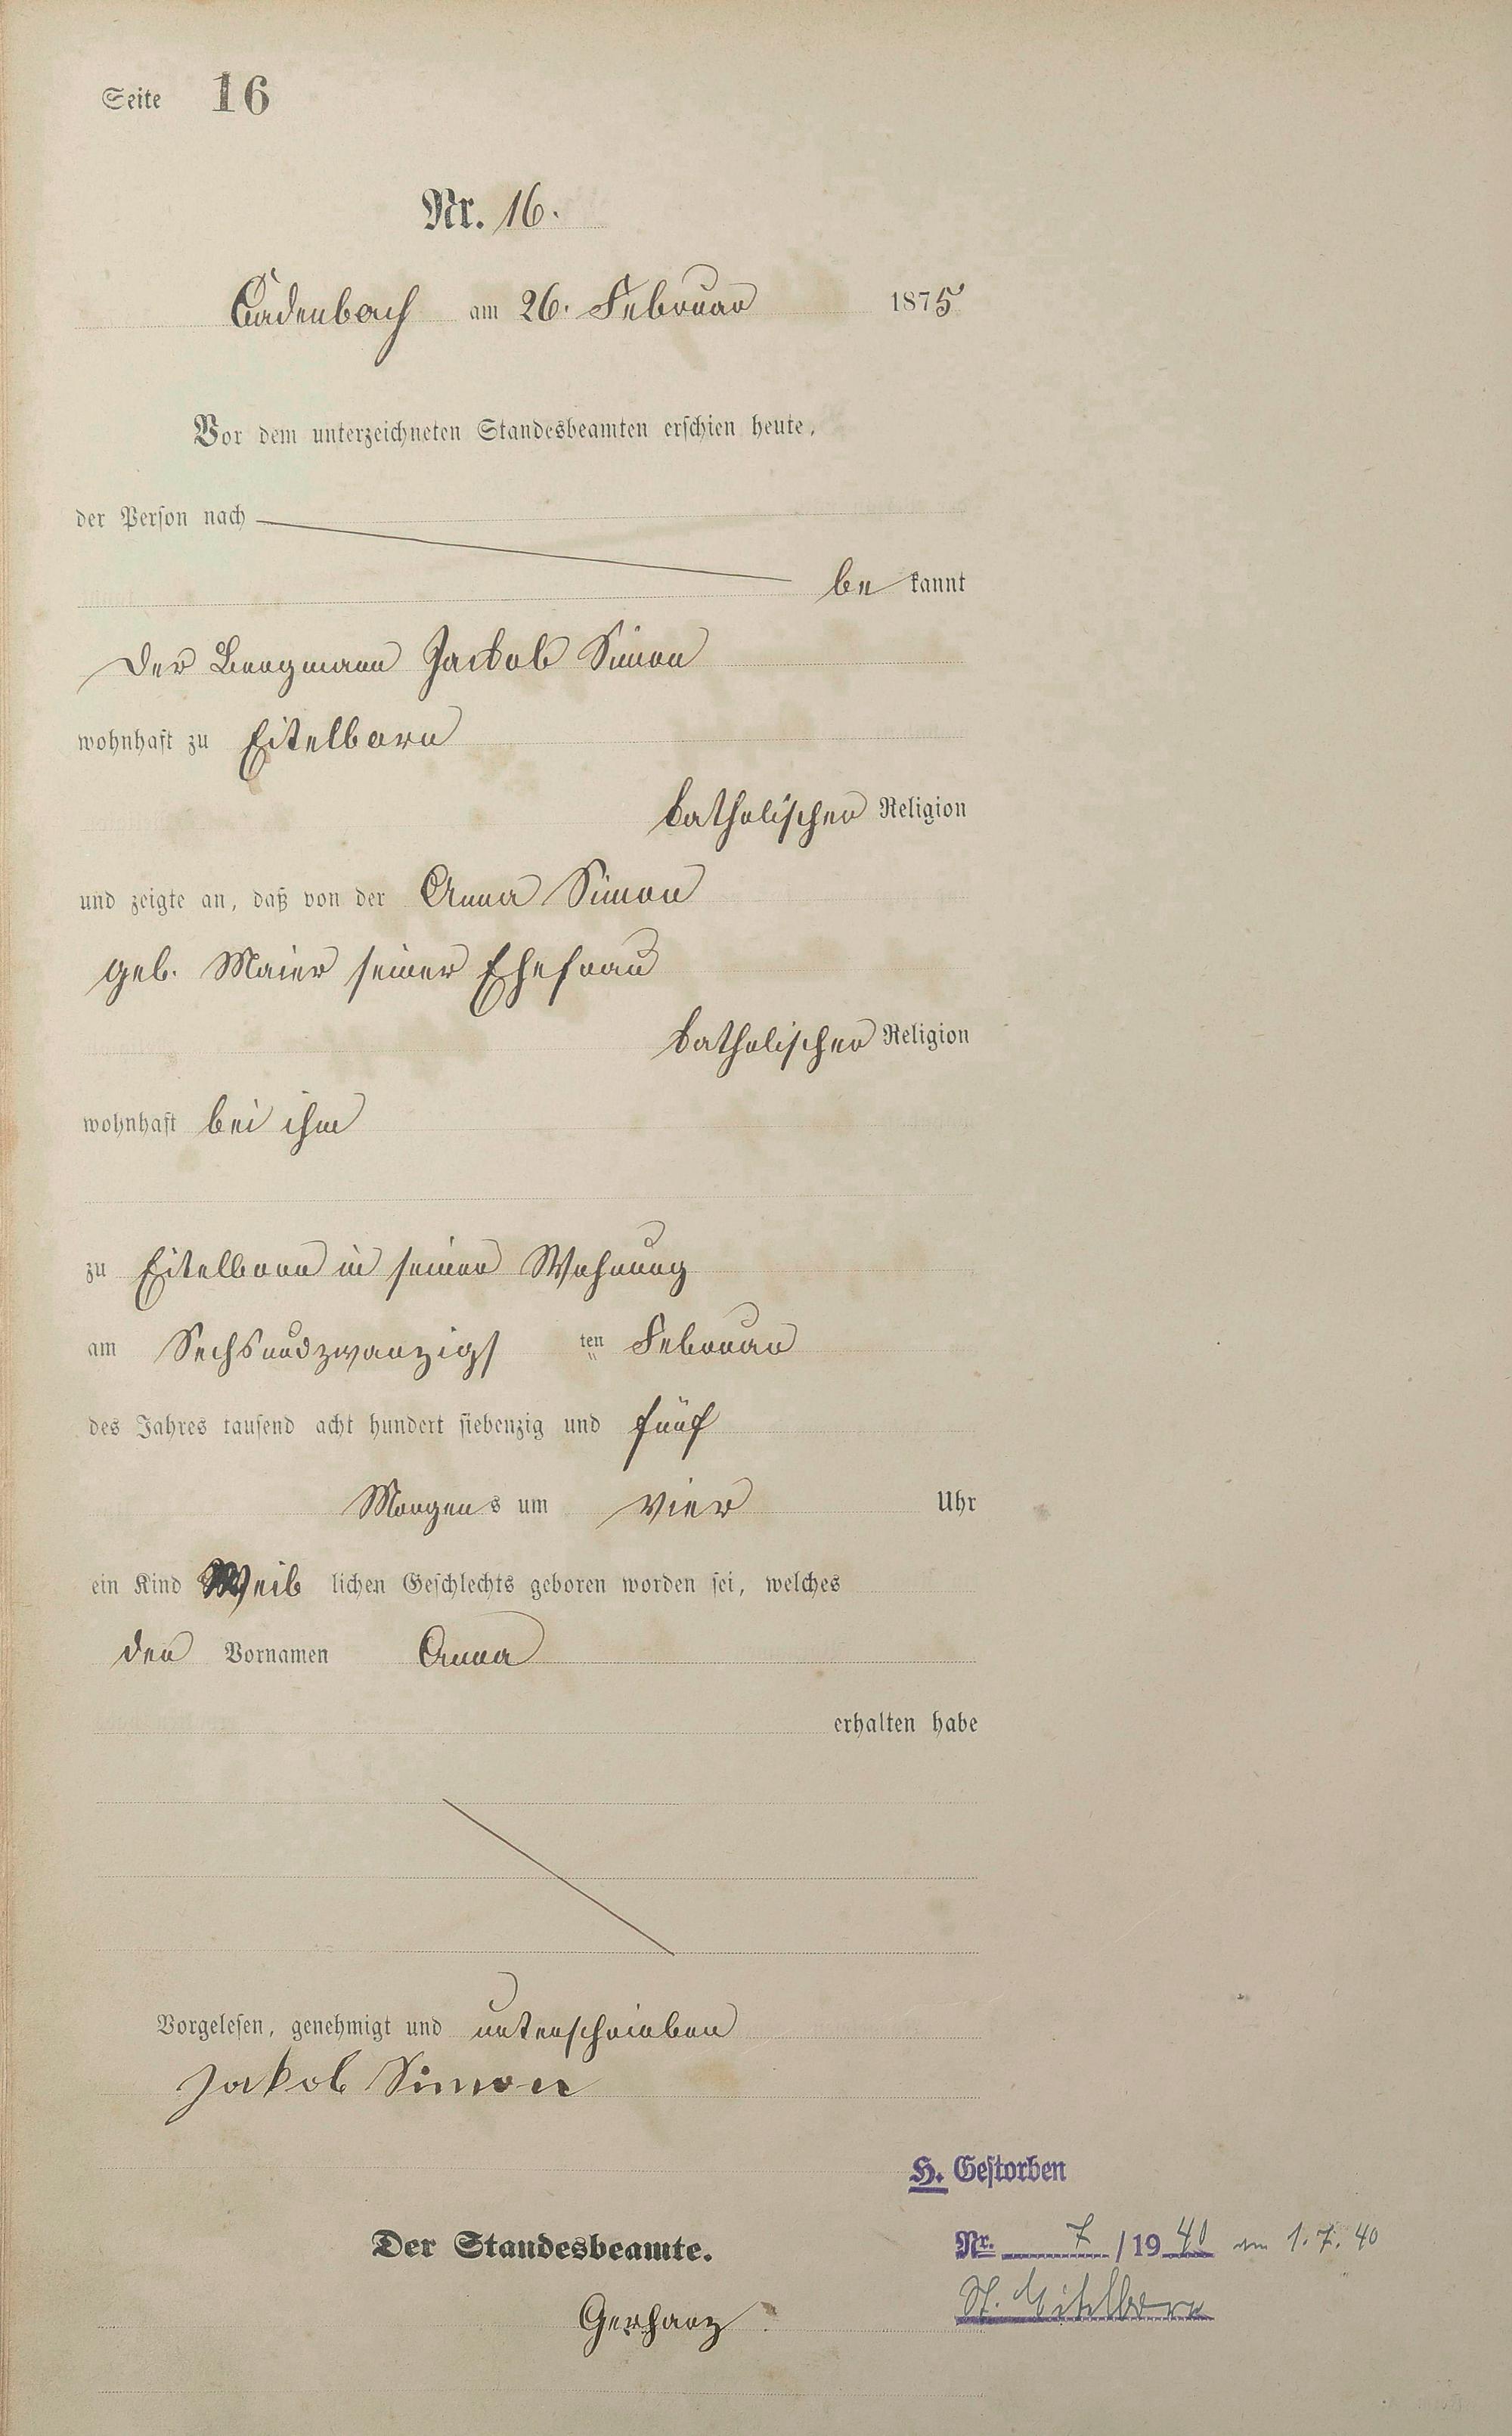 Seite 16
Nr. 16.
Cadenbach am 26. Februar 1875
Vor dem unterzeichneten Standesbeamten erschien heute,
der Person nach
be kannt
der Bergmann Jackob Simon
wohnhaft zu Eitelborn
katholischer Religion
und zeigte an, daß von der Anna Simon
geb. Maier seiner Ehefrau
katholischer Religion
wohnhaft bei ihm
zu Eitelborn in seiner Wohnung
am Sechsundzwanzigs ten Februar
des Jahres tausend acht hundert siebenzig und fünf
Morgens um vier Uhr
ein Kind Weib lichen Geschlechts geboren worden sei, welches
den Vornamen Anna
erhalten habe
Vorgelesen, genehmigt und unterschrieben
Jakob Simon
H. Gestorben
Der Standesbeamte.
Nr. 7 /19 40 am 1.7.40
St. Eitelborn
Gerharz